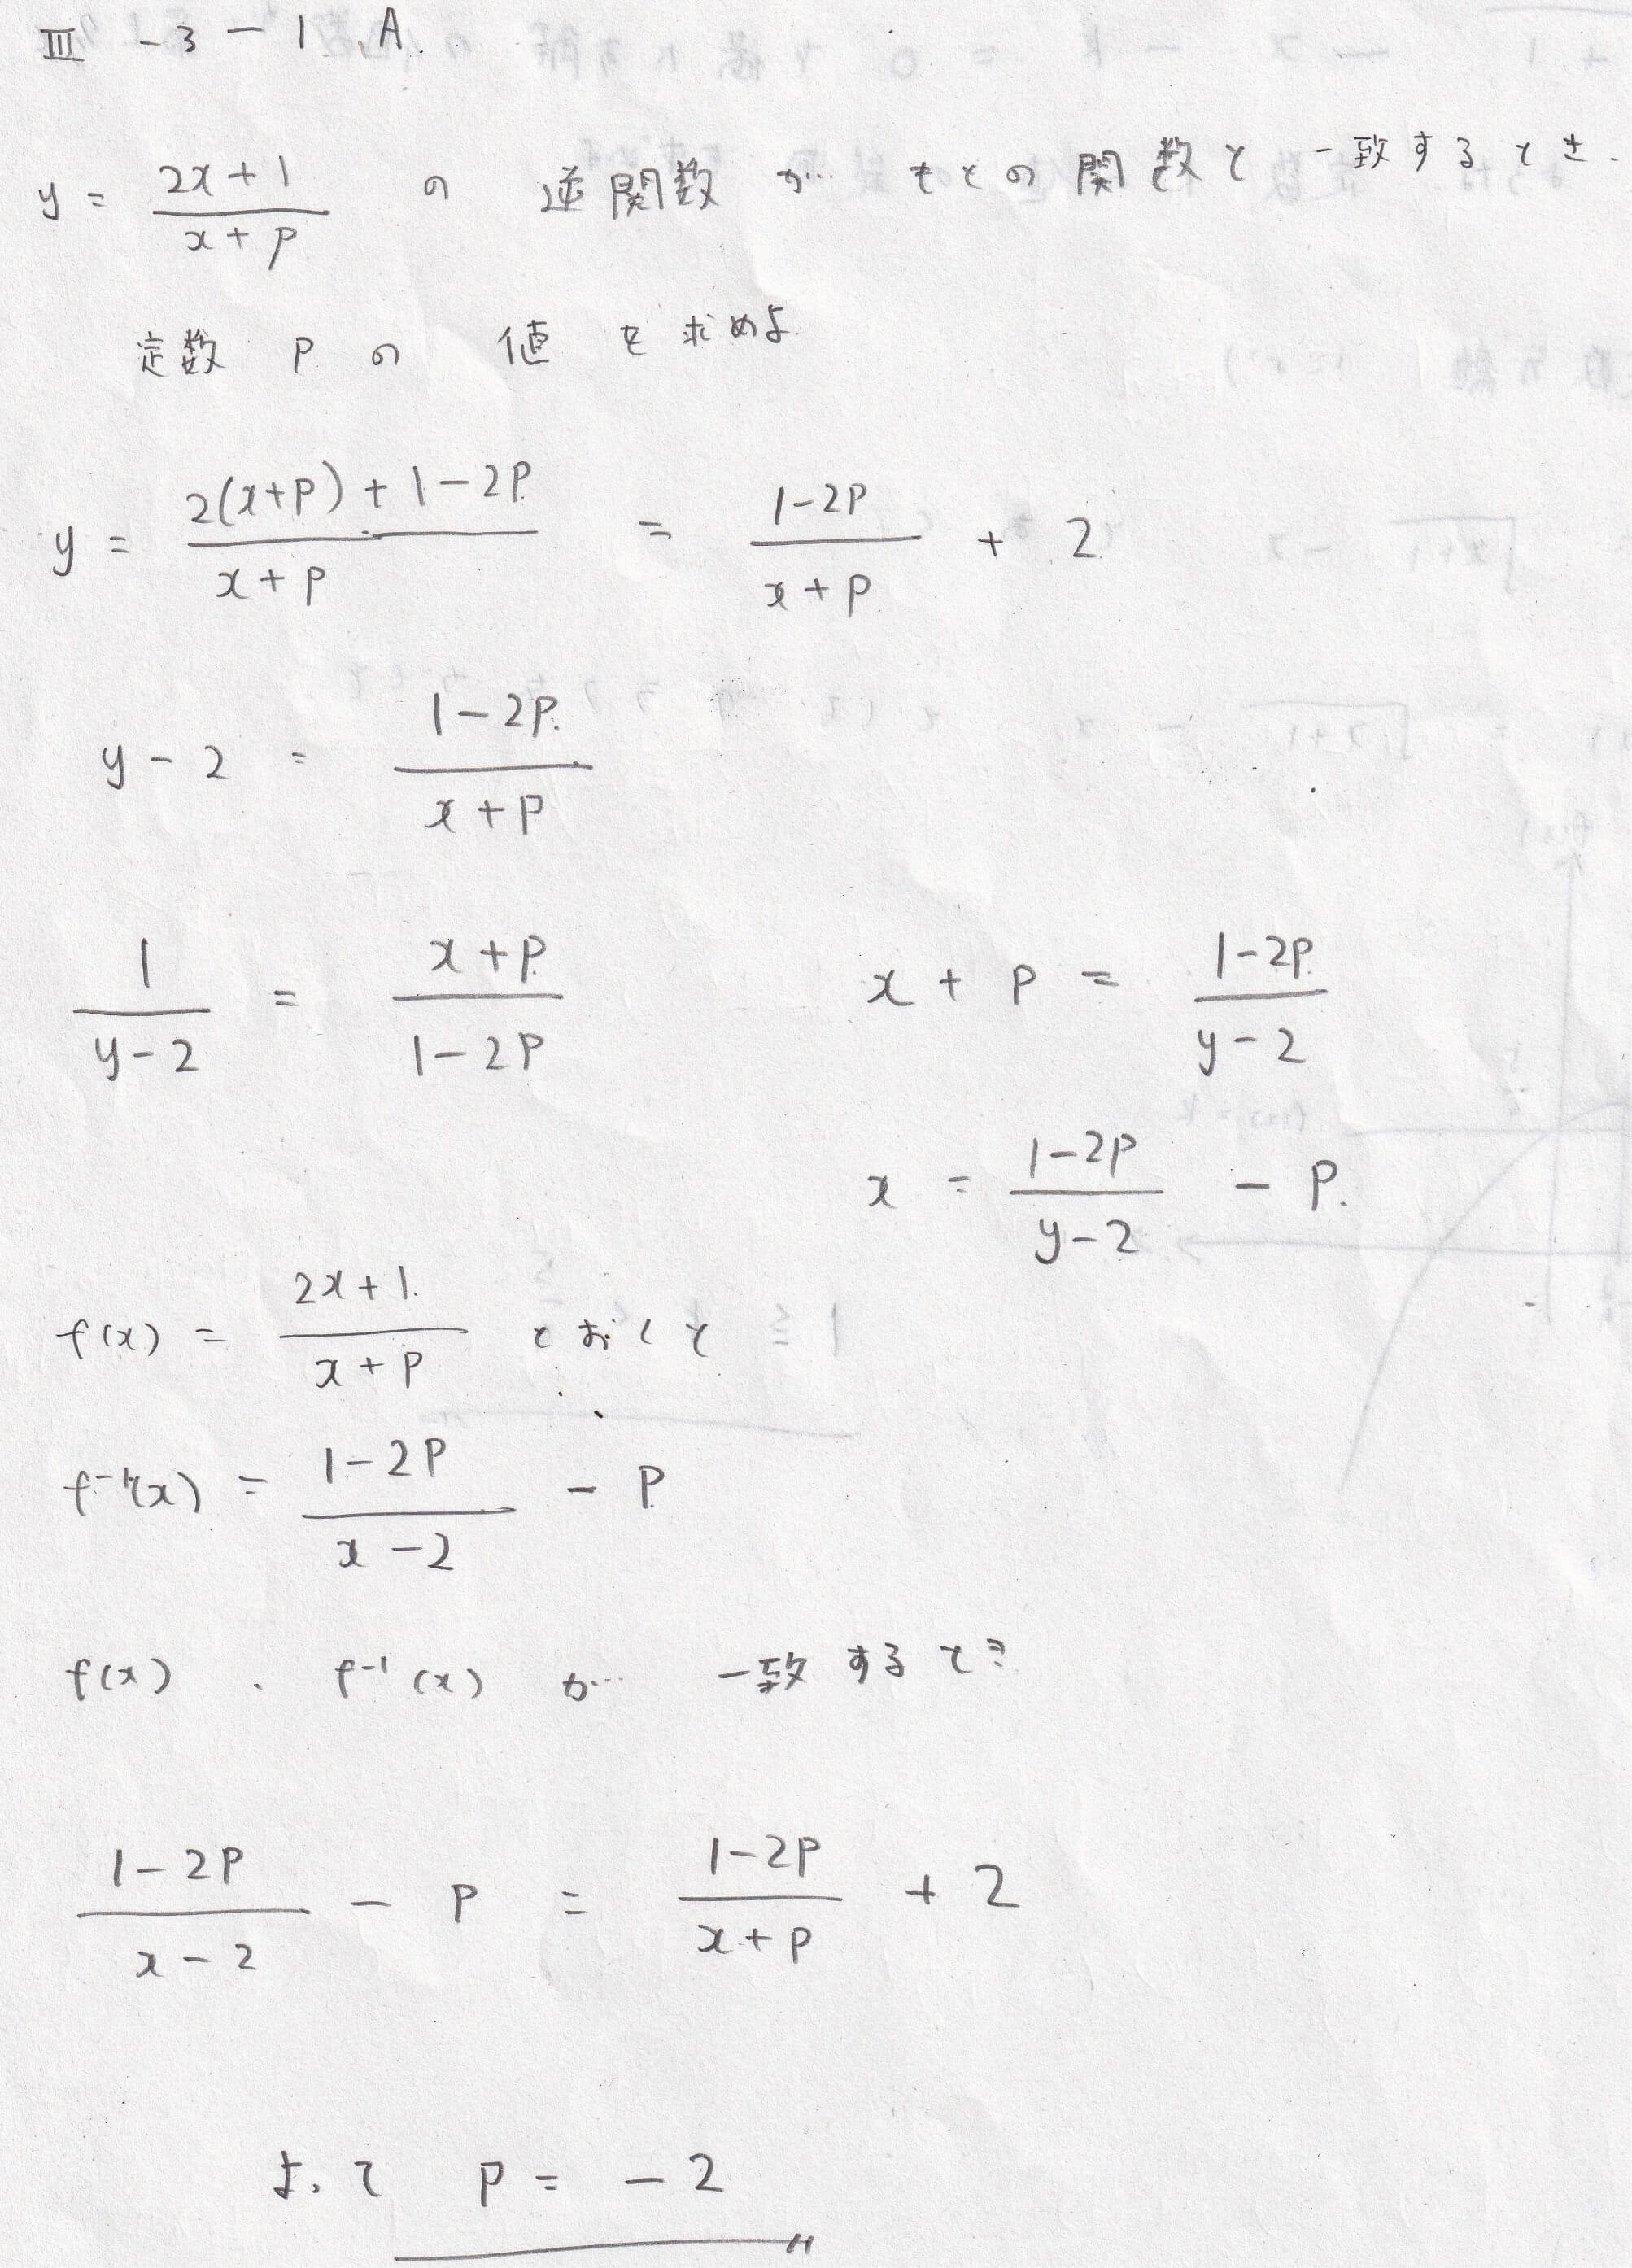 Ⅲ - 3 - 1 A.
y = (2x+1)/(x+p) の 逆関数 が もとの 関数と 一致するとき.
定数 p の 値 を 求めよ.
y = (2(x+p)+1-2p)/(x+p) = (1-2p)/(x+p) + 2
y - 2 = (1-2p)/(x+p)
1/(y-2) = (x+p)/(1-2p)  x + p = (1-2p)/(y-2)
x = (1-2p)/(y-2) - p.
f(x) = (2x+1)/(x+p) とおくと
f⁻¹(x) = (1-2p)/(x-2) - p
f(x) 、 f⁻¹(x) が 一致するとき
(1-2p)/(x-2) - p = (1-2p)/(x+p) + 2
よって p = -2 〃